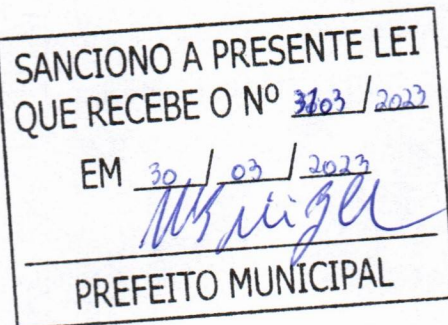 SANCIONO A PRESENTE LEI
QUE RECEBE O Nº 3103/2023
EM 30/03/2023
PREFEITO MUNICIPAL